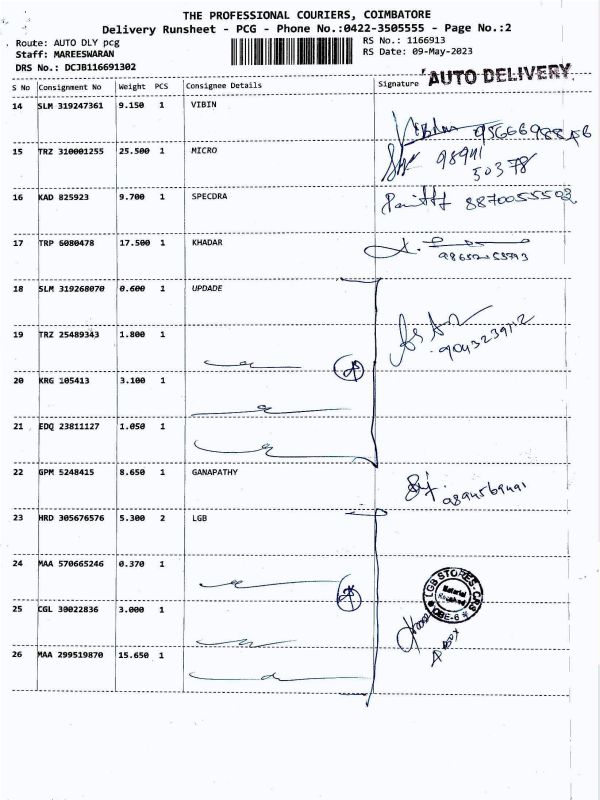 THE PROFESSIONAL COURIERS, COIMBATORE
Delivery Runsheet - PCG - Phone No.:0422-3505555 - Page No.:2
Route: AUTO DLY pcg RS No.: 1166913
Staff: MAREESWARAN RS Date: 09-May-2023
DRS No.: DCJB116691302
AUTO DELIVERY
S No Consignment No Weight PCS Consignee Details Signature
14 SLM 319247361 9.150 1 VIBIN
15 TRZ 310001255 25.500 1 MICRO
98941
50378
16 KAD 825923 9.700 1 SPECDRA
8870055502
17 TRP 6080478 17.500 1 KHADAR
18 SLM 319268070 0.600 1 UPDADE
19 TRZ 25489343 1.800 1
9043239112
20 KRG 105413 3.100 1
21 EDQ 23811127 1.050 1
22 GPM 5248415 8.650 1 GANAPATHY
9894569491
23 HRD 305676576 5.300 2 LGB
24 MAA 570665246 0.370 1
LGB STORES, CRS
Material
Received
CBE-6
25 CGL 30022836 3.000 1
26 MAA 299519870 15.650 1